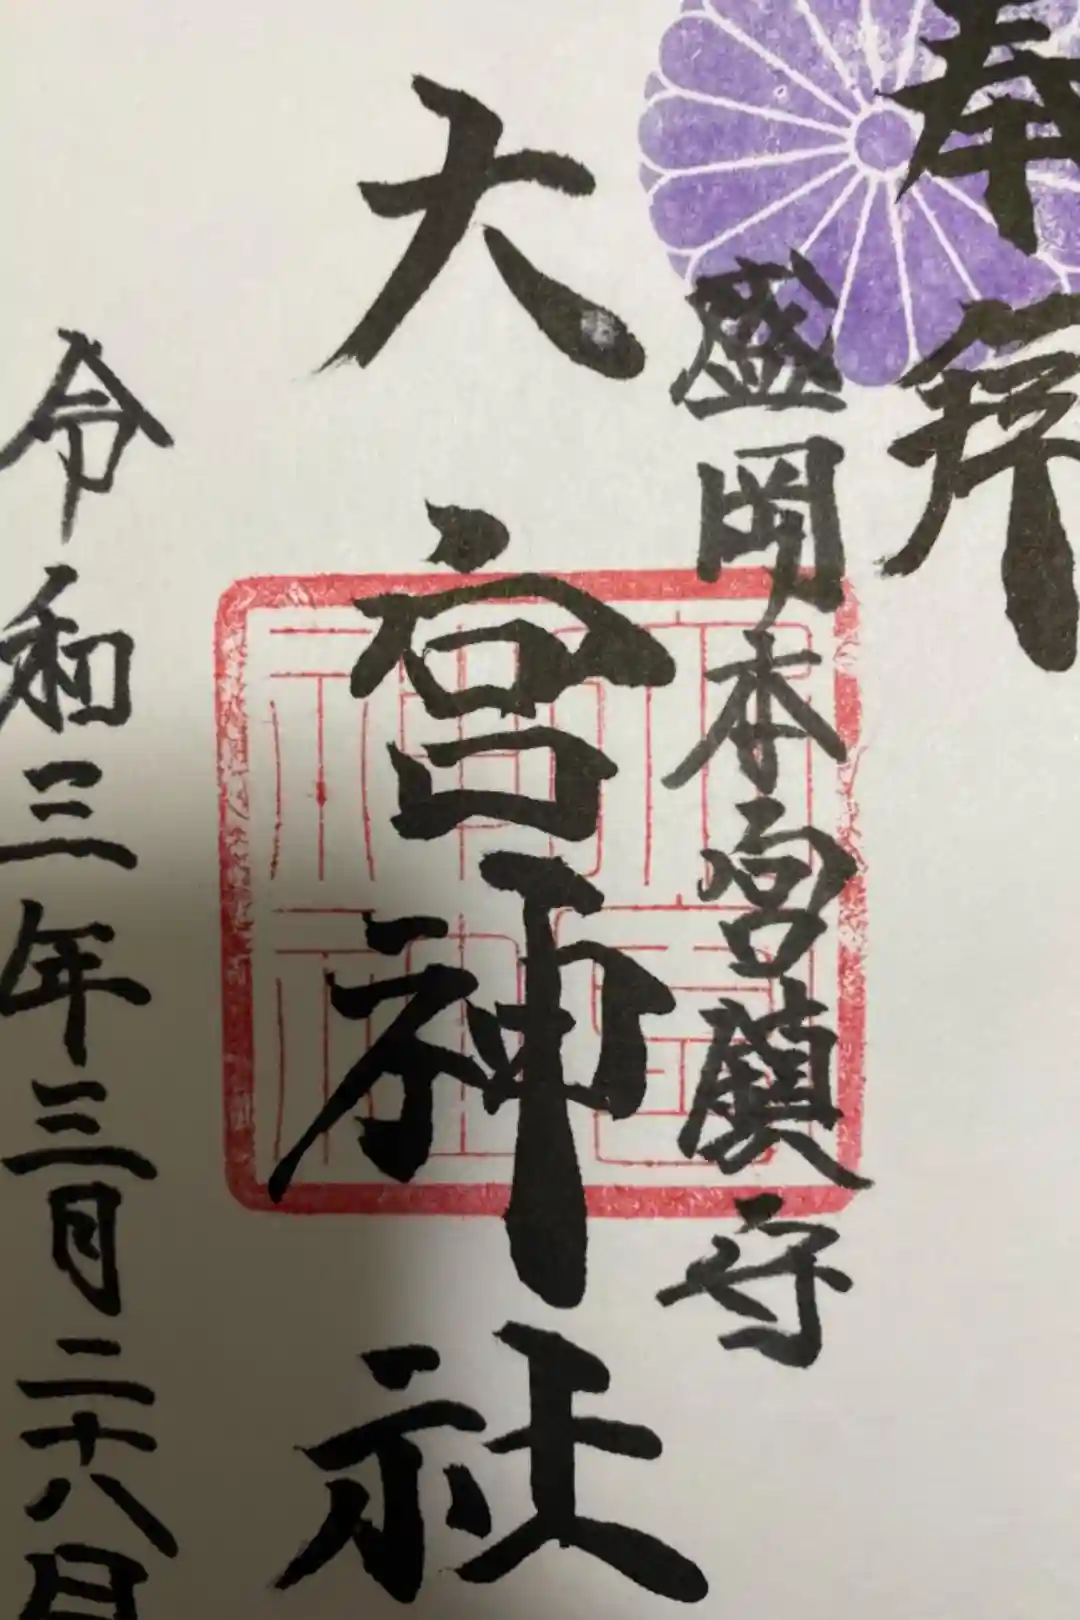 奉拝
盛岡本宮鎮守
大宮神社
令和三年三月二十八日